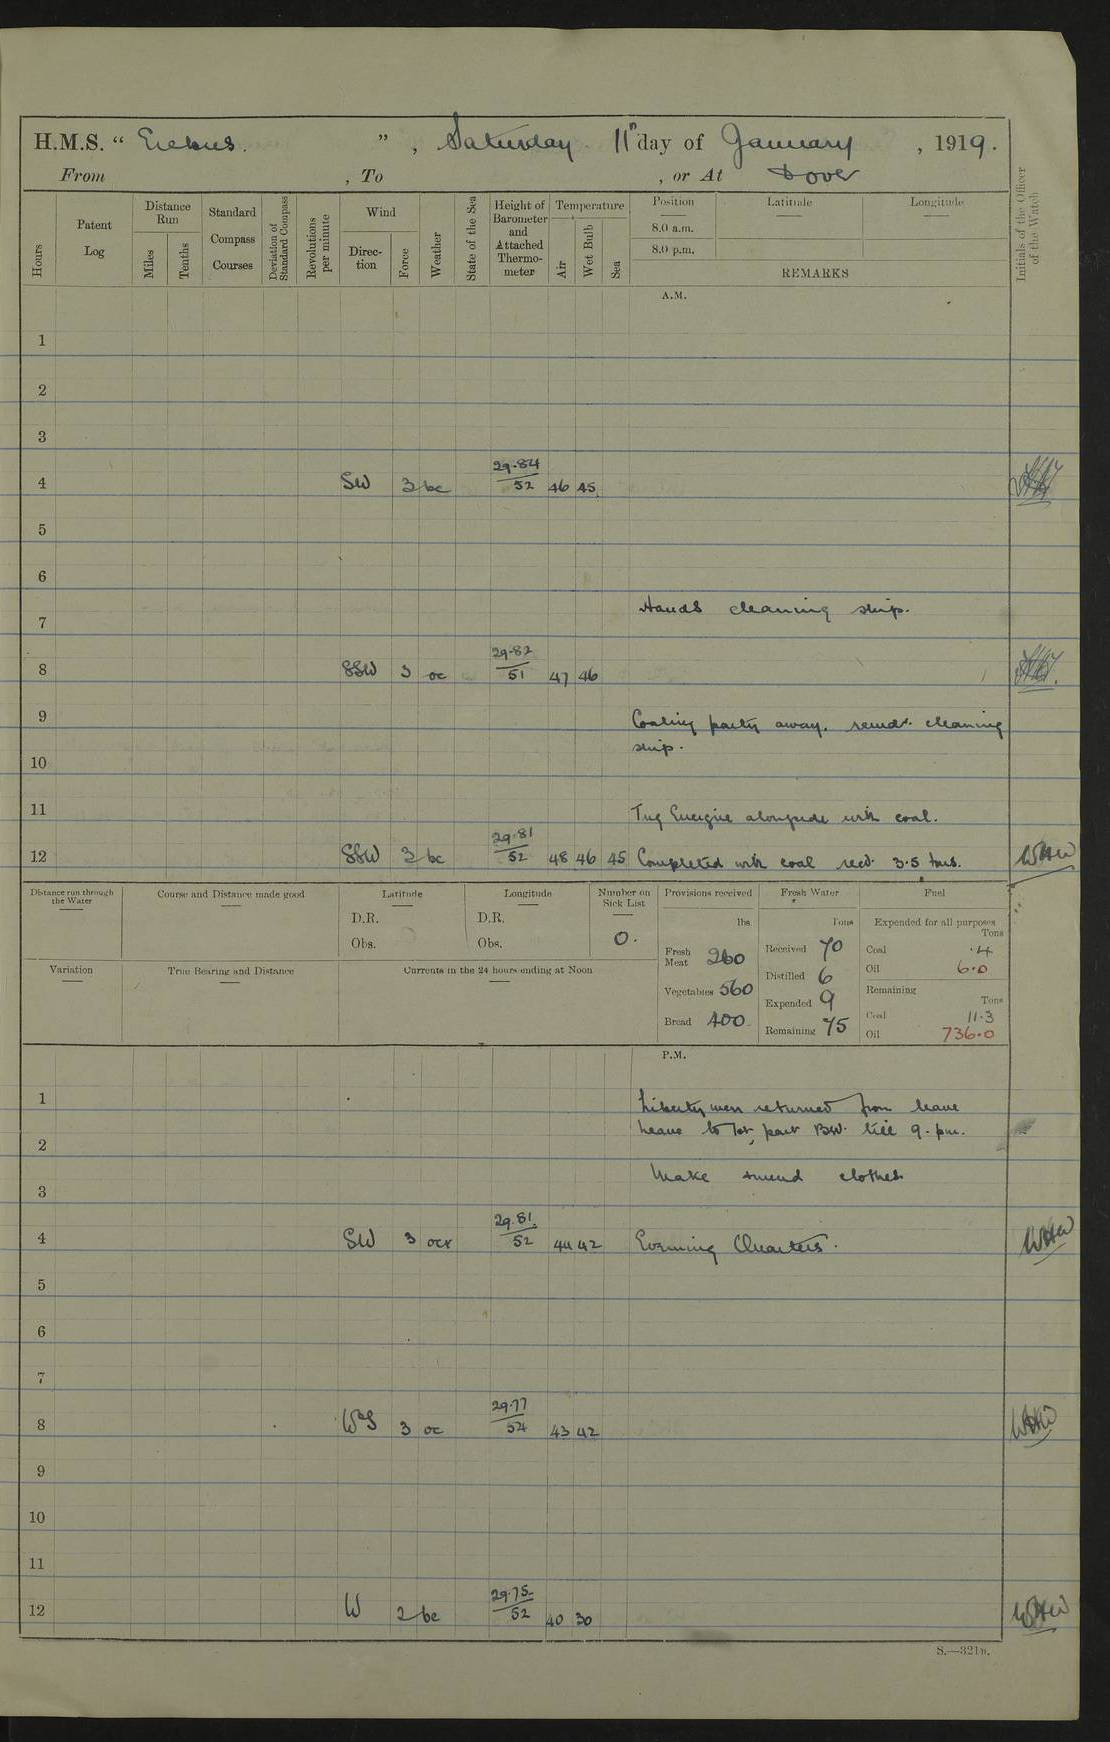 H.M.S. " Erebus. ", Saturday 11th day of January, 1919.
From , To , or At Dover
Hours
Patent Log
Distance Run
Miles
Tenths
Standard Compass Courses
Deviation of Standard Compass
Revolutions per minute
Wind
Direction
Force
Weather
State of the Sea
Height of Barometer and Attached Thermometer
Temperature
Air
Wet Bulb
Sea
Position
Latitude
Longitude
8.0 a.m.
8.0 p.m.
REMARKS
Initials of the Officer of the Watch
A.M.
1
2
3
4 SW 3 bc 29.84 52 46 45
5
6
Hands cleaning ship.
7
8 SSW 3 oc 29.82 51 47 46
9 Coaling party away. remdr. cleaning
ship.
10
11 Tug alongside with coal.
12 SSW 3 bc 29.81 52 48 46 45 Completed with coal recd. 3.5 tons. WHW
Distance run through the Water
Course and Distance made good
Latitude
D.R.
Obs.
Longitude
D.R.
Obs.
Number on Sick List
0.
Provisions received
lbs.
Fresh Meat 260
Vegetables 560
Bread 400
Fresh Water
Tons
Received 70
Distilled 6
Expended 9
Remaining 75
Fuel
Expended for all purposes
Tons
Coal .4
Oil 6.0
Remaining
Tons
Coal 11.3
Oil 736.0
Variation
True Bearing and Distance
Currents in the 24 hours ending at Noon
P.M.
1 Liberty men returned from leave
Leave to 1st part BW. till 9. pm.
2
Make mend clothes
3
4 SW 3 ocr 29.81 52 44 42 Evening Quarters. WHW
5
6
7
8 WbS 3 oc 29.77 54 43 42 WHW
9
10
11
12 W 2 bc 29.75 52 40 30 WHW
S.—321B.